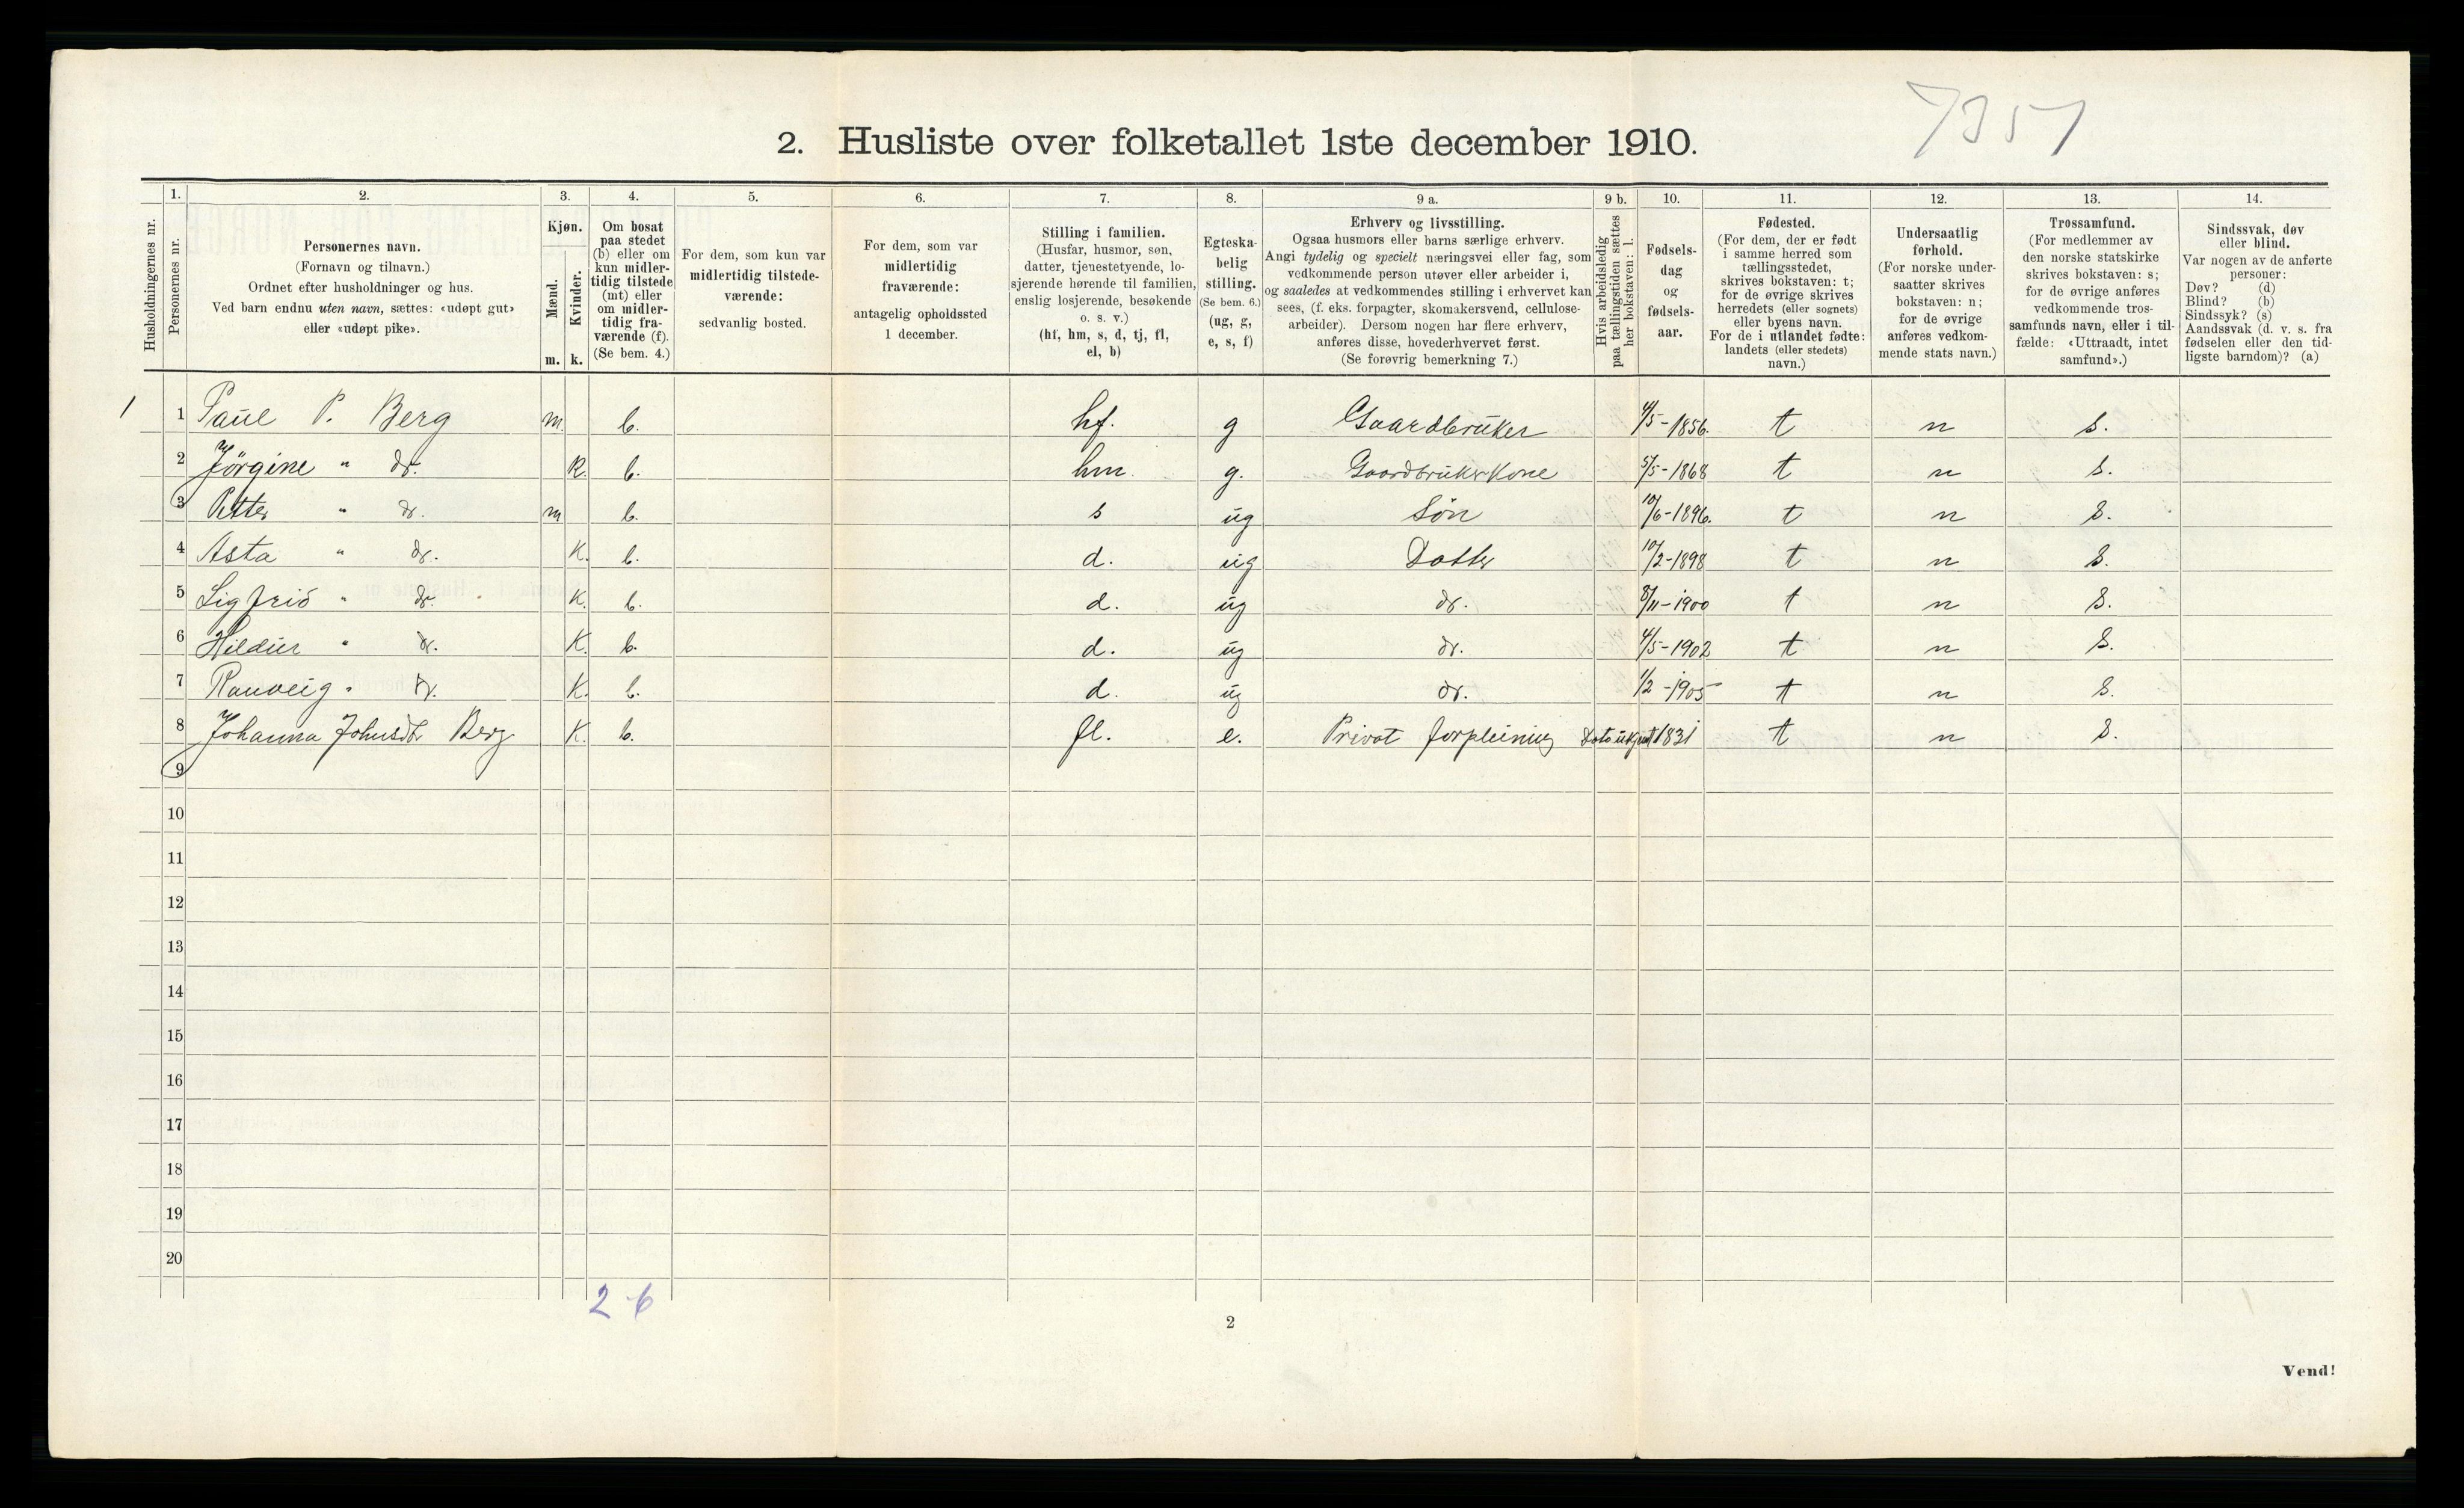 7351
2. Husliste over folketallet 1ste december 1910.
1. 2. 3. 4. 5. 6. 7. 8. 9 a. 9 b. 10. 11. 12. 13. 14.
Husholdningernes nr.
Personernes nr.
Personernes navn.
(Fornavn og tilnavn.)
Ordnet efter husholdninger og hus.
Ved barn endnu uten navn, sættes: «udøpt gut»
eller «udøpt pike».
Kjøn.
Mænd.
Kvinder.
m. k.
Om bosat
paa stedet
(b) eller om
kun midler-
tidig tilstede
(mt) eller
om midler-
tidig fra-
værende (f).
(Se bem. 4.)
For dem, som kun var
midlertidig tilstede-
værende:
sedvanlig bosted.
For dem, som var
midlertidig
fraværende:
antagelig opholdssted
1 december.
Stilling i familien.
(Husfar, husmor, søn,
datter, tjenestetyende, lo-
sjerende hørende til familien,
enslig losjerende, besøkende
o. s. v.)
(hf, hm, s, d, tj, fl,
el, b)
Egteska-
belig
stilling.
(Se bem. 6.)
(ug, g,
e, s, f)
Erhverv og livsstilling.
Ogsaa husmors eller barns særlige erhverv.
Angi tydelig og specielt næringsvei eller fag, som
vedkommende person utøver eller arbeider i,
og saaledes at vedkommendes stilling i erhvervet kan
sees, (f. eks. forpagter, skomakersvend, cellulose-
arbeider). Dersom nogen har flere erhverv,
anføres disse, hovederhvervet først.
(Se forøvrig bemerkning 7.)
Hvis arbeidsledig
paa tællingstiden sættes
her bokstaven: l.
Fødsels-
dag
og
fødsels-
aar.
Fødested.
(For dem, der er født
i samme herred som
tællingsstedet,
skrives bokstaven: t;
for de øvrige skrives
herredets (eller sognets)
eller byens navn.
For de i utlandet fødte:
landets (eller stedets)
navn.)
Undersaatlig
forhold.
(For norske under-
saatter skrives
bokstaven: n;
for de øvrige
anføres vedkom-
mende stats navn.)
Trossamfund.
(For medlemmer av
den norske statskirke
skrives bokstaven: s;
for de øvrige anføres
vedkommende tros-
samfunds navn, eller i til-
fælde: «Uttraadt, intet
samfund».)
Sindssvak, døv
eller blind.
Var nogen av de anførte
personer:
Døv? (d)
Blind? (b)
Sindssyk? (s)
Aandssvak (d. v. s. fra
fødselen eller den tid-
ligste barndom)? (a)
1 1 Paul P. Berg m. b. hf. g Gaardbruker 4/5-1856. t n s.
2 Jørgine " do. K. b. hm g. Gaardbrukerkone 5/5-1868 t n s.
3 Petter " do. m b. s ug Søn 10/6-1896. t n s.
4 Asta " do. K. b. d. ug Datter 10/2-1898 t n s.
5 Sigfrid " do. K. b. d. ug do. 8/11-1900 t n s.
6 Hildur " do. K. b. d. ug do. 4/5-1902 t n s.
7 Ranveig " do. K. b. d. ug do. 1/2-1905 t n s.
8 Johanna Johnsdtr Berg K. b. fl. e. Privat forpleining Dato ukjent 1831 t n s.
9
10
11
12
13
14
15
16
17
18
19
20
2-6
2
Vend!